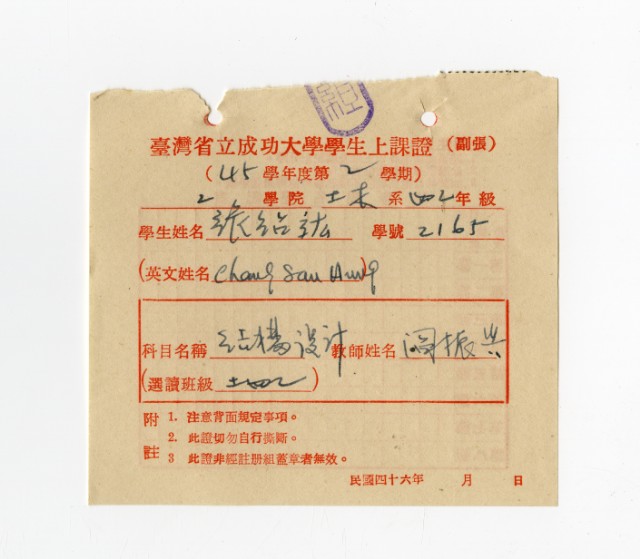 臺灣省立成功大學學生上課證 (副張)
( 45 學年度第 2 學期)
學院 土木 系 四乙 年級
學生姓名 張紹竑 學號 2165
(英文姓名 Chang Sau Hung)
科目名稱 结構设计 教師姓名 阎振兴
(選讀班級 土四乙 )
附註 1. 注意背面規定事項。
2. 此證切勿自行撕斷。
3 此證非經註册組蓋章者無效。
民國四十六年 月 日